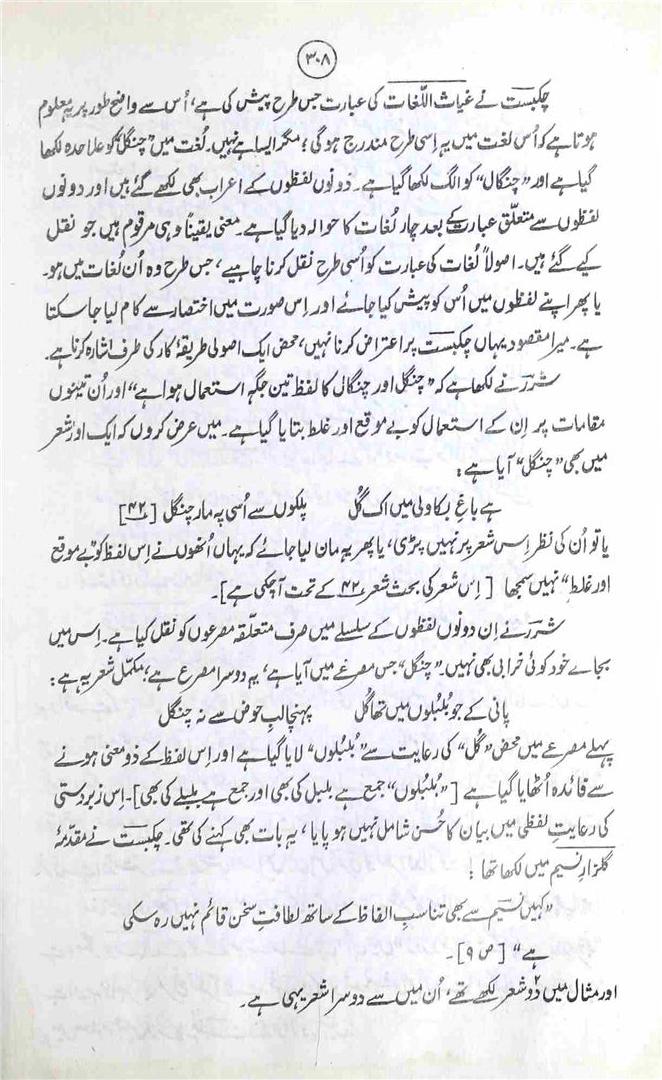 ۳۰۸
چکبست نے غیاث اللّغات کی عبارت جس طرح پیش کی ہے، اُس سے واضح طور پر یہ معلوم
ہوتا ہے کہ اُس لغت میں یہ اِسی طرح مندرج ہوگی؛ مگر ایسا ہے نہیں۔ لُغت میں ”چنگل“ کو علاحدہ لکھا
گیا ہے اور ”چنگال“ کو الگ لکھا گیا ہے۔ دونوں لفظوں کے اعراب بھی لکھے گئے ہیں اور دونوں
لفظوں سے متعلّق عبارت کے بعد چار لُغات کا حوالہ دیا گیا ہے۔ معنی یقیناً وہی مرقوم ہیں جو نقل
کیے گئے ہیں۔ اصولاً لُغات کی عبارت کو اُسی طرح نقل کرنا چاہیے، جس طرح وہ اُن لُغات میں ہو۔
یا پھر اپنے لفظوں میں اُس کو پیش کیا جائے اور اِس صورت میں اختصار سے کام لیا جا سکتا
ہے۔ میرا مقصود یہاں چکبست پر اعتراض کرنا نہیں، محض ایک اصولی طریقۂ کار کی طرف اشارہ کرنا ہے۔
شرر نے لکھا ہے کہ ”چنگل اور چنگال کا لفظ تین جگہ استعمال ہوا ہے“ اور اُن تینوں
مقامات پر اِن کے استعمال کو بے موقع اور غلط بتایا گیا ہے۔ میں عرض کروں کہ ایک اور شعر
میں بھی ”چنگل“ آیا ہے:
ہے باغِ بکاولی میں اک گُل پلکوں سے اُسی پہ مار چنگل [۴۲]
یا تو اُن کی نظر اِس شعر پر نہیں پڑی، یا پھر یہ مان لیا جائے کہ یہاں اُنھوں نے اِس لفظ کو ”بے موقع
اور غلط“ نہیں سمجھا [اِس شعر کی بحث شعر ۴۲ کے تحت آچکی ہے]۔
شرر نے اِن دونوں لفظوں کے سلسلے میں صرف متعلّقہ مصرعوں کو نقل کیا ہے۔ اِس میں
بجاے خود کوئی خرابی بھی نہیں۔ ”چنگل“ جس مصرعے میں آیا ہے، یہ دوسرا مصرع ہے، مکمّل شعر یہ ہے:
پانی کے جو بُلبُلوں میں تھا گُل پہنچا لبِ حوض سے نہ چنگل
پہلے مصرعے میں محض ”گُل“ کی رعایت سے ”بُلبُلوں“ لایا گیا ہے اور اِس لفظ کے ذو معنی ہونے
سے فائدہ اُٹھایا گیا ہے [”بُلبُلوں“ جمع ہے بلبل کی بھی اور جمع ہے بلبلے کی بھی]۔ اِس زبردستی
کی رعایتِ لفظی میں بیان کا حُسن شامل نہیں ہو پایا، یہ بات بھی کہنے کی تھی۔ چکبست نے مقدّمۂ
گلزارِ نسیم میں لکھا تھا:
”کہیں نسیم سے بھی تناسبِ الفاظ کے ساتھ لطافتِ سخن قائم نہیں رہ سکی
ہے“ [ص ۹]۔
اور مثال میں دو۲ شعر لکھے تھے، اُن میں سے دوسرا شعر یہی ہے۔